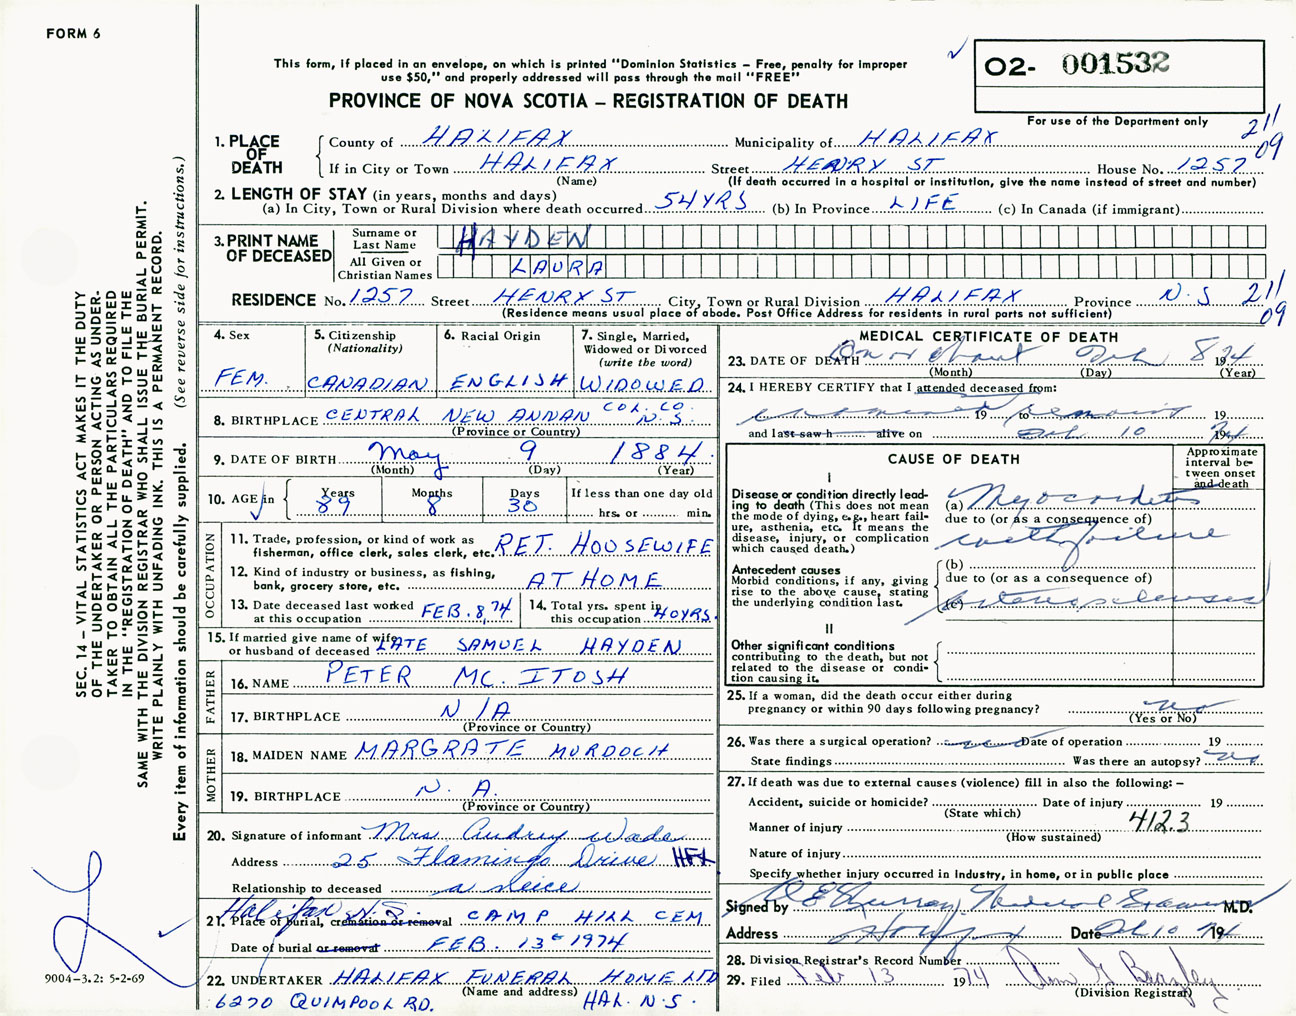 FORM 6
This form, if placed in an envelope, on which is printed "Dominion Statistics – Free, penalty for improper
use $50," and properly addressed will pass through the mail "FREE"
PROVINCE OF NOVA SCOTIA – REGISTRATION OF DEATH
O2- 001532
For use of the Department only
211
09
1. PLACE OF DEATH
County of HALIFAX Municipality of HALIFAX
If in City or Town HALIFAX Street HENRY ST House No. 1257
(Name) (If death occurred in a hospital or institution, give the name instead of street and number)
2. LENGTH OF STAY (in years, months and days)
(a) In City, Town or Rural Division where death occurred 54 YRS (b) In Province LIFE (c) In Canada (if immigrant)
3. PRINT NAME OF DECEASED
Surname or Last Name HAYDEN
All Given or Christian Names LAURA
RESIDENCE No. 1257 Street HENRY ST City, Town or Rural Division HALIFAX Province N.S 211
09
(Residence means usual place of abode. Post Office Address for residents in rural parts not sufficient)
4. Sex FEM.
5. Citizenship (Nationality) CANADIAN
6. Racial Origin ENGLISH
7. Single, Married, Widowed or Divorced (write the word) WIDOWED
8. BIRTHPLACE CENTRAL NEW ANNAN COL. CO. N.S.
(Province or Country)
9. DATE OF BIRTH May 9 1884
(Month) (Day) (Year)
10. AGE in Years 89 Months 8 Days 30 If less than one day old
hrs. or min.
OCCUPATION
11. Trade, profession, or kind of work as
fisherman, office clerk, sales clerk, etc. RET. HOUSEWIFE
12. Kind of industry or business, as fishing,
bank, grocery store, etc. AT HOME
13. Date deceased last worked
at this occupation FEB. 8, 74
14. Total yrs. spent in
this occupation 40 YRS.
15. If married give name of wife
or husband of deceased LATE SAMUEL HAYDEN
FATHER
16. NAME PETER MC. ITOSH
17. BIRTHPLACE N/A
(Province or Country)
MOTHER
18. MAIDEN NAME MARGRATE MURDOCH
19. BIRTHPLACE N. A.
(Province or Country)
20. Signature of informant Mrs. Audrey Wade
Address 25 Flamingo Drive HFX
Relationship to deceased a neice
Halifax N.S.
21. Place of burial, cremation or removal CAMP HILL CEM
Date of burial or removal FEB. 13 1974
22. UNDERTAKER HALIFAX FUNERAL HOME LTD
(Name and address)
6270 QUIMPOOL RD. HAL. N.S.
MEDICAL CERTIFICATE OF DEATH
23. DATE OF DEATH On or about Feb 8 1974
(Month) (Day) (Year)
24. I HEREBY CERTIFY that I attended deceased from:
examined 19 to remains 19
and last saw h alive on Feb 10 1974
CAUSE OF DEATH
Approximate interval between onset and death
I
Disease or condition directly lead-
ing to death (This does not mean
the mode of dying, e.g., heart fail-
ure, asthenia, etc. It means the
disease, injury, or complication
which caused death.)
(a) Myocarditis
due to (or as a consequence of)
with failure
Antecedent causes
Morbid conditions, if any, giving
rise to the above cause, stating
the underlying condition last.
(b)
due to (or as a consequence of)
(c) Arteriosclerosis
II
Other significant conditions
contributing to the death, but not
related to the disease or condi-
tion causing it.
25. If a woman, did the death occur either during
pregnancy or within 90 days following pregnancy? no
(Yes or No)
26. Was there a surgical operation? Date of operation 19
State findings Was there an autopsy? no
27. If death was due to external causes (violence) fill in also the following: –
Accident, suicide or homicide? Date of injury 19
(State which)
Manner of injury 412.3
(How sustained)
Nature of injury
Specify whether injury occurred in Industry, in home, or in public place
Signed by Murray Medical Examiner M.D.
Address Date Feb 10 1974
28. Division Registrar's Record Number
29. Filed Feb 13 1974
(Division Registrar)
SEC. 14 – VITAL STATISTICS ACT MAKES IT THE DUTY
OF THE UNDERTAKER OR PERSON ACTING AS UNDER-
TAKER TO OBTAIN ALL THE PARTICULARS REQUIRED
IN THE "REGISTRATION OF DEATH" AND TO FILE THE
SAME WITH THE DIVISION REGISTRAR WHO SHALL ISSUE THE BURIAL PERMIT.
WRITE PLAINLY WITH UNFADING INK. THIS IS A PERMANENT RECORD.
Every item of information should be carefully supplied. (See reverse side for instructions.)
9004-3.2: 5-2-69